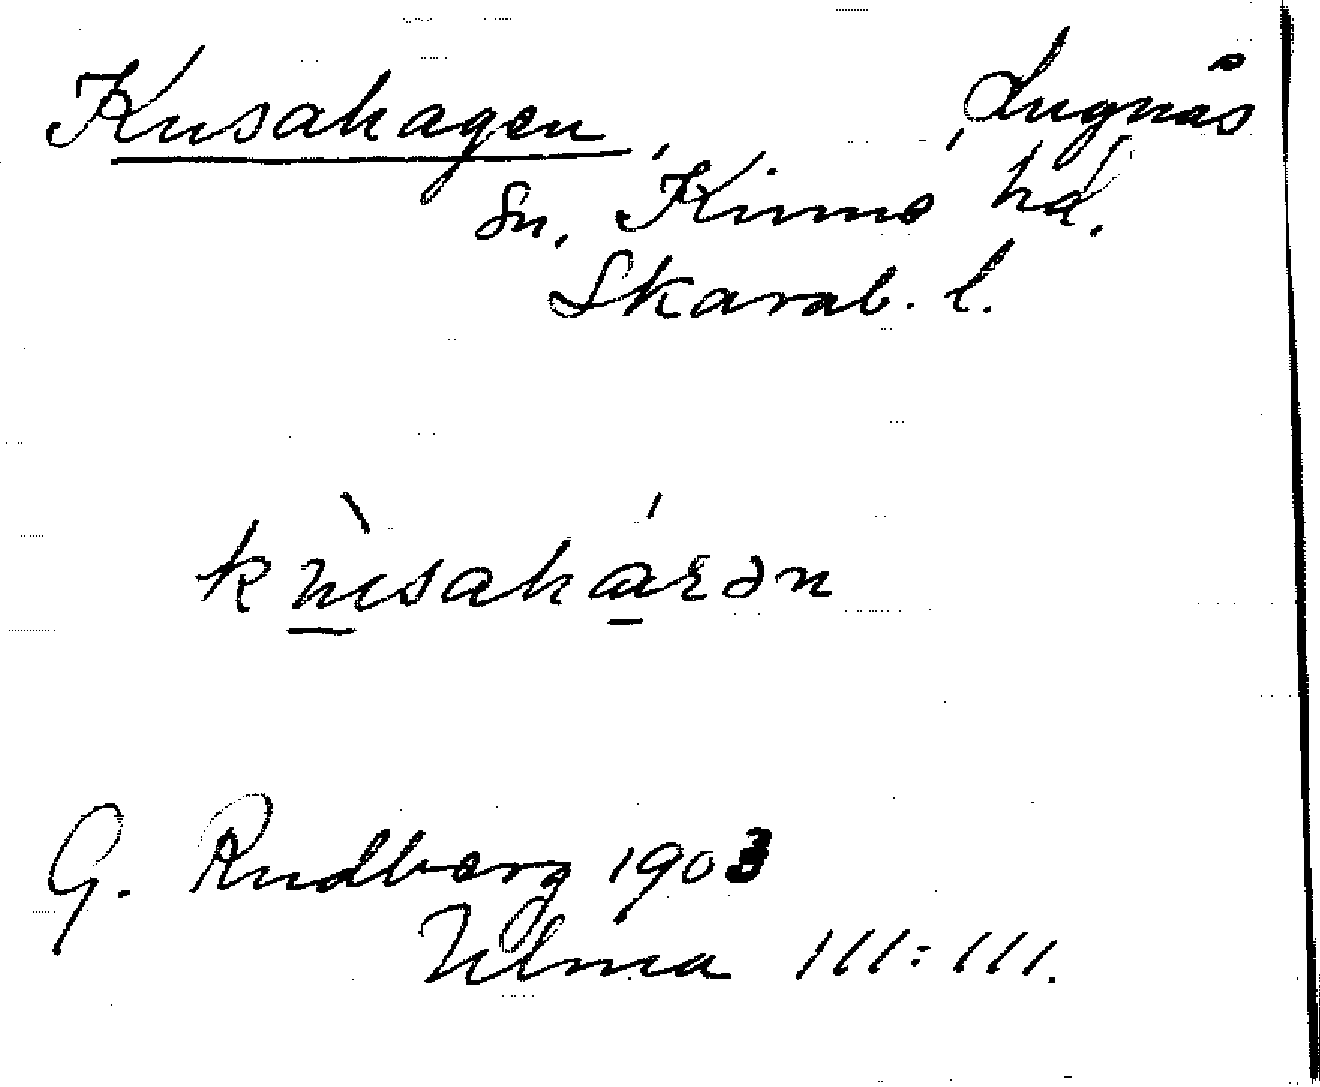 Kusahagen, Lugnås
sn, Kinne hd.
Skarab. l.
kùsaháꞬən
G. Rudberg 1903
Ulma 111:111.